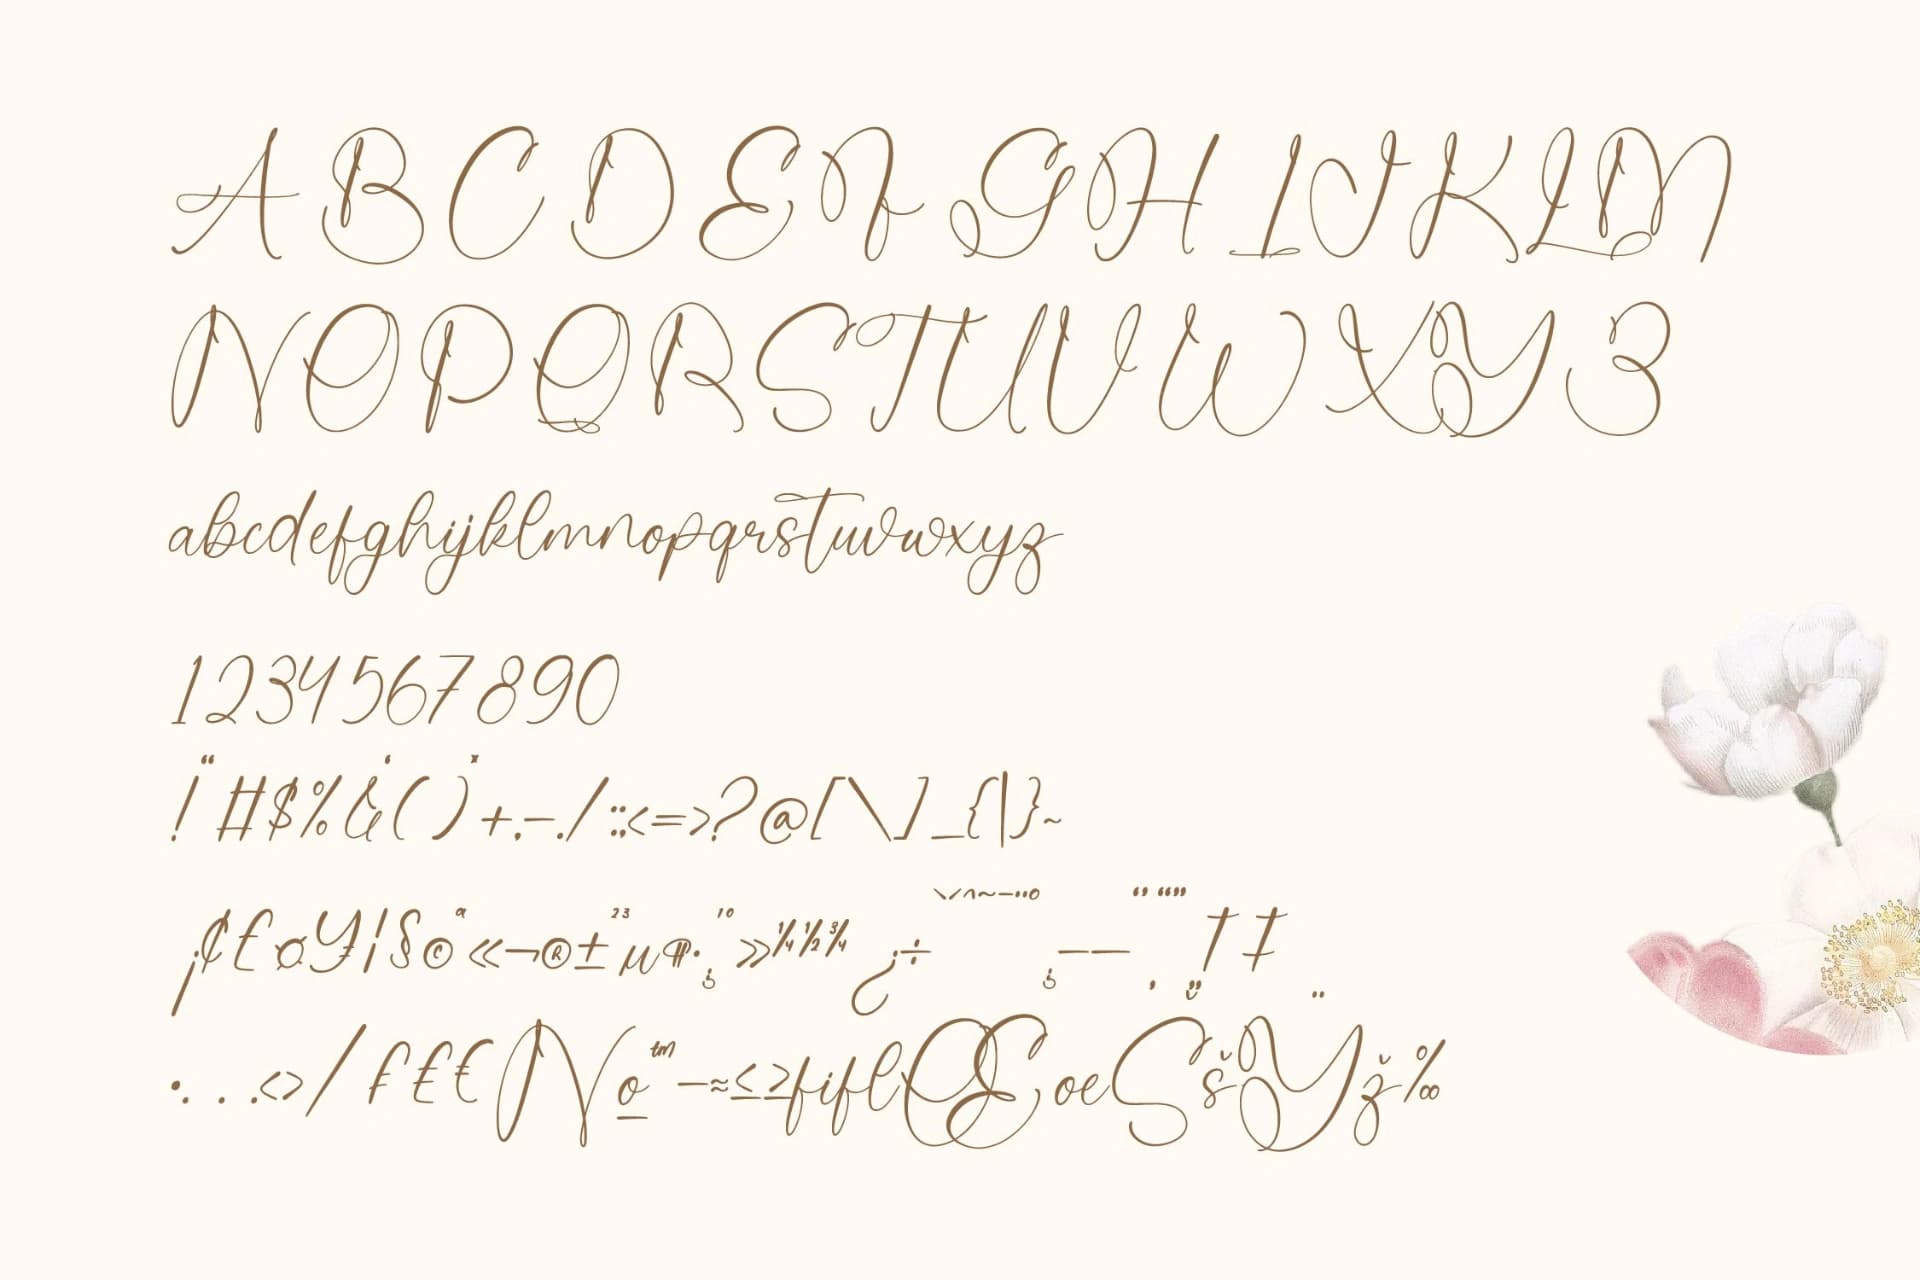 A B C D E F G H I J K L M
N O P Q R S T U V W X Y Z
abcdefghijklmnopqrstuvwxyz
1234567890
! " # $ % & ' ( ) * + , - . / : ; < = > ? @ [ \ ] _ { | } ~
¡ ¢ £ ¤ ¥ ¦ § © ª « ¬ ® ± ² ³ µ ¶ · ¸ ¹ º » ¼ ½ ¾ ¿ ÷ — — ‘ ’ “ ” † ‡
• . . . ‹ › ⁄ ƒ £ € № ™ − ≈ ≤ ≥ fi fl Œ œ Š š Ÿ ž ‰